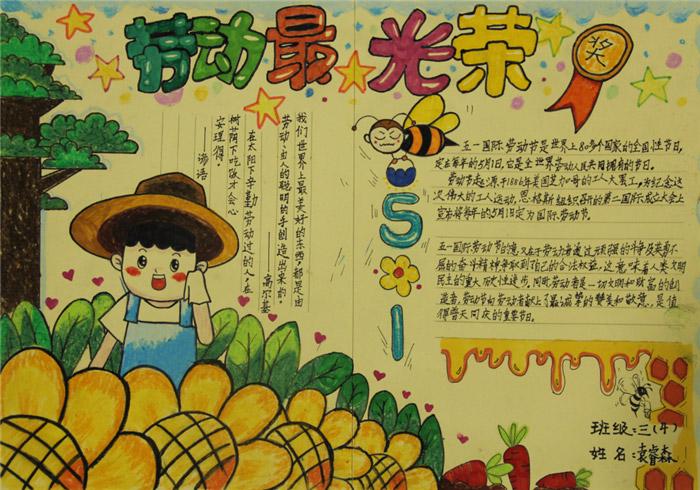 劳动最光荣
奖
我们世界上最美好的东西,都是由
劳动、由人的聪明的手创造出来的。
——高尔基
在太阳下辛勤劳动过的人,在
树荫下吃饭才会心
安理得。
——谚语
5
1
五一国际劳动节是世界上80多个国家的全国性节日,
定在每年的5月1日,它是全世界劳动人民共同拥有的节日。
劳动节起源于1886年美国芝加哥的工人大罢工,为纪念这
次伟大的工人运动,恩格斯组织召开的第二国际成立大会上
宣布将每年的5月1日定为国际劳动节。
五一国际劳动节的意义在于劳动者通过顽强的斗争及英勇不
屈的奋斗精神争取到了自己的合法权益,这意味着人类文明
民主的重大历史性进步,同时劳动者是一切文明和财富的创
造者,劳动节向劳动者献上了最诚挚的赞美和敬意,是值
得普天同庆的重要节日。
班级:三(4)
姓名:袁睿森